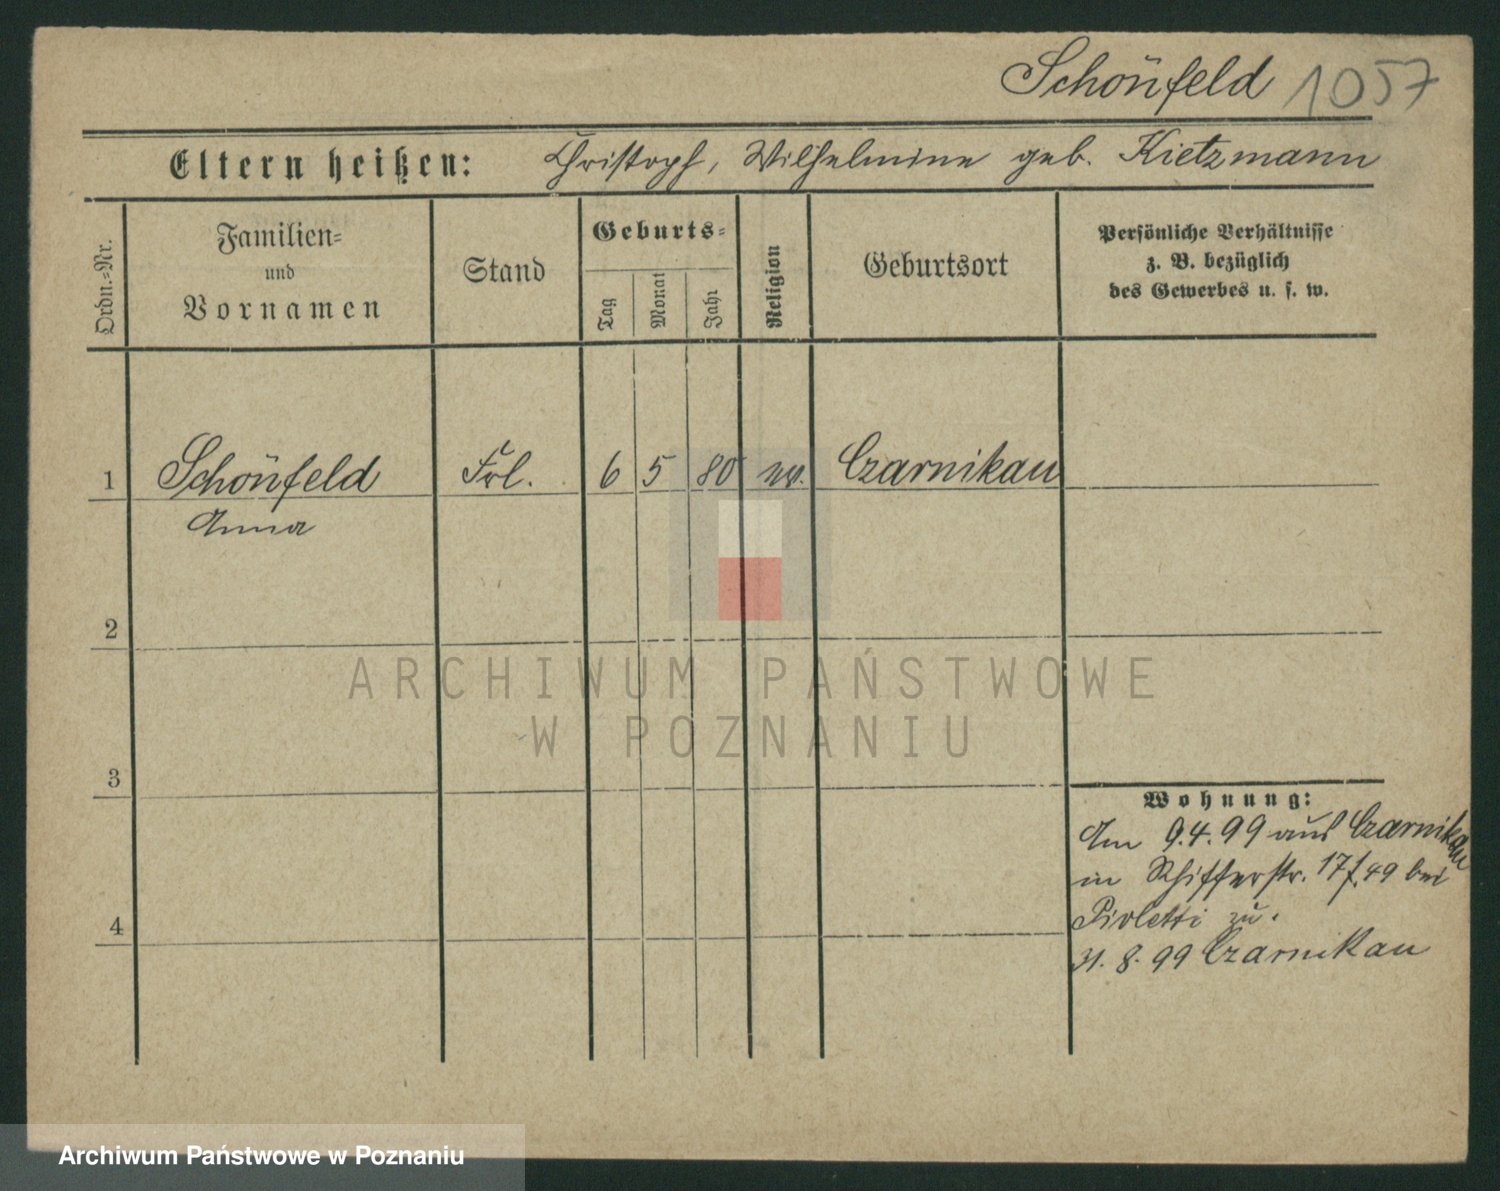 Schönfeld 1057
Eltern heißen: Christoph, Wilhelmine geb. Kietzmann
Ordn.-Nr.
Familien-
und
Vornamen
Stand
Geburts-
Tag
Monat
Jahr
Religion
Geburtsort
Persönliche Verhältnisse
z. B. bezüglich
des Gewerbes u. s. w.
1 Schönfeld Frl. 6 5 80 ev. Czarnikau
Anna
2
3
4
Wohnung:
Am 9.4.99 aus Czarnikau
in Schifferstr. 17/ 49 bei
Pioletti zu.
31. 8. 99 Czarnikau
ARCHIWUM PAŃSTWOWE
W POZNANIU
Archiwum Państwowe w Poznaniu